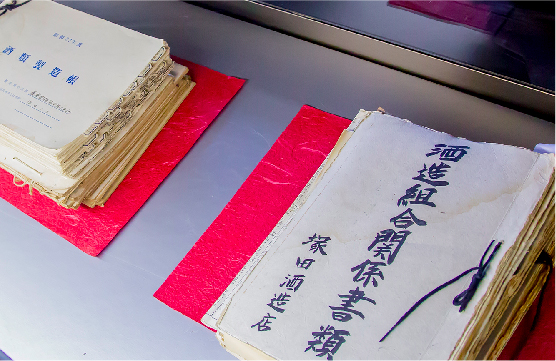 酒類製造帳
酒造組合関係書類
塚田酒造店